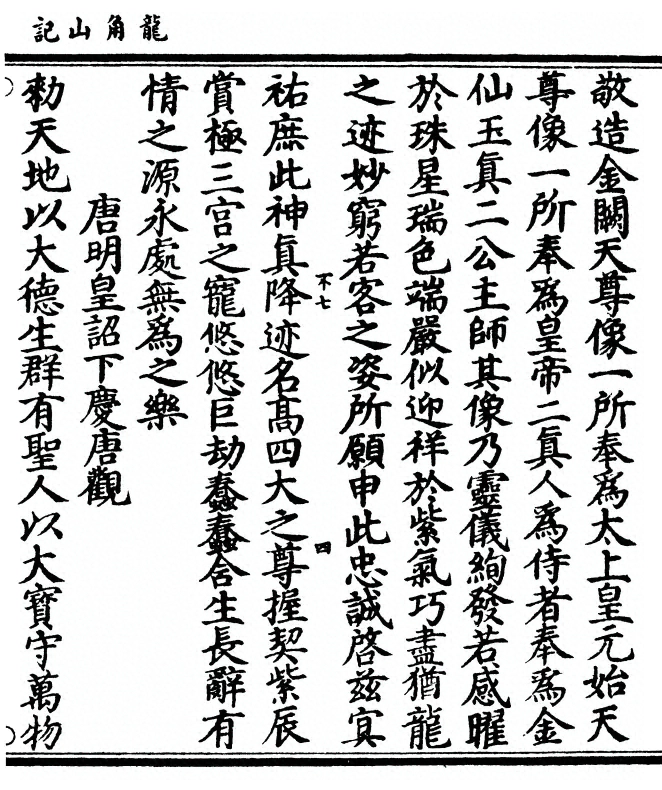 龍角山記
敬造金闕天尊像一所奉爲太上皇元始天
尊像一所奉爲皇帝二真人爲侍者奉爲金
仙玉真二公主師其像乃靈儀絢發若感曜
於珠星瑞色端嚴似迎祥於紫氣巧盡猶龍
之迹妙窮若客之姿所願申此忠誠啓兹宜
不七
四
祐庶此神真降迹名高四大之尊握契紫辰
賞極三宮之寵悠悠巨劫蠢蠢含生長辭有
情之源永處無爲之樂
唐明皇詔下慶唐觀
勑天地以大德生群有聖人以大寶守萬物